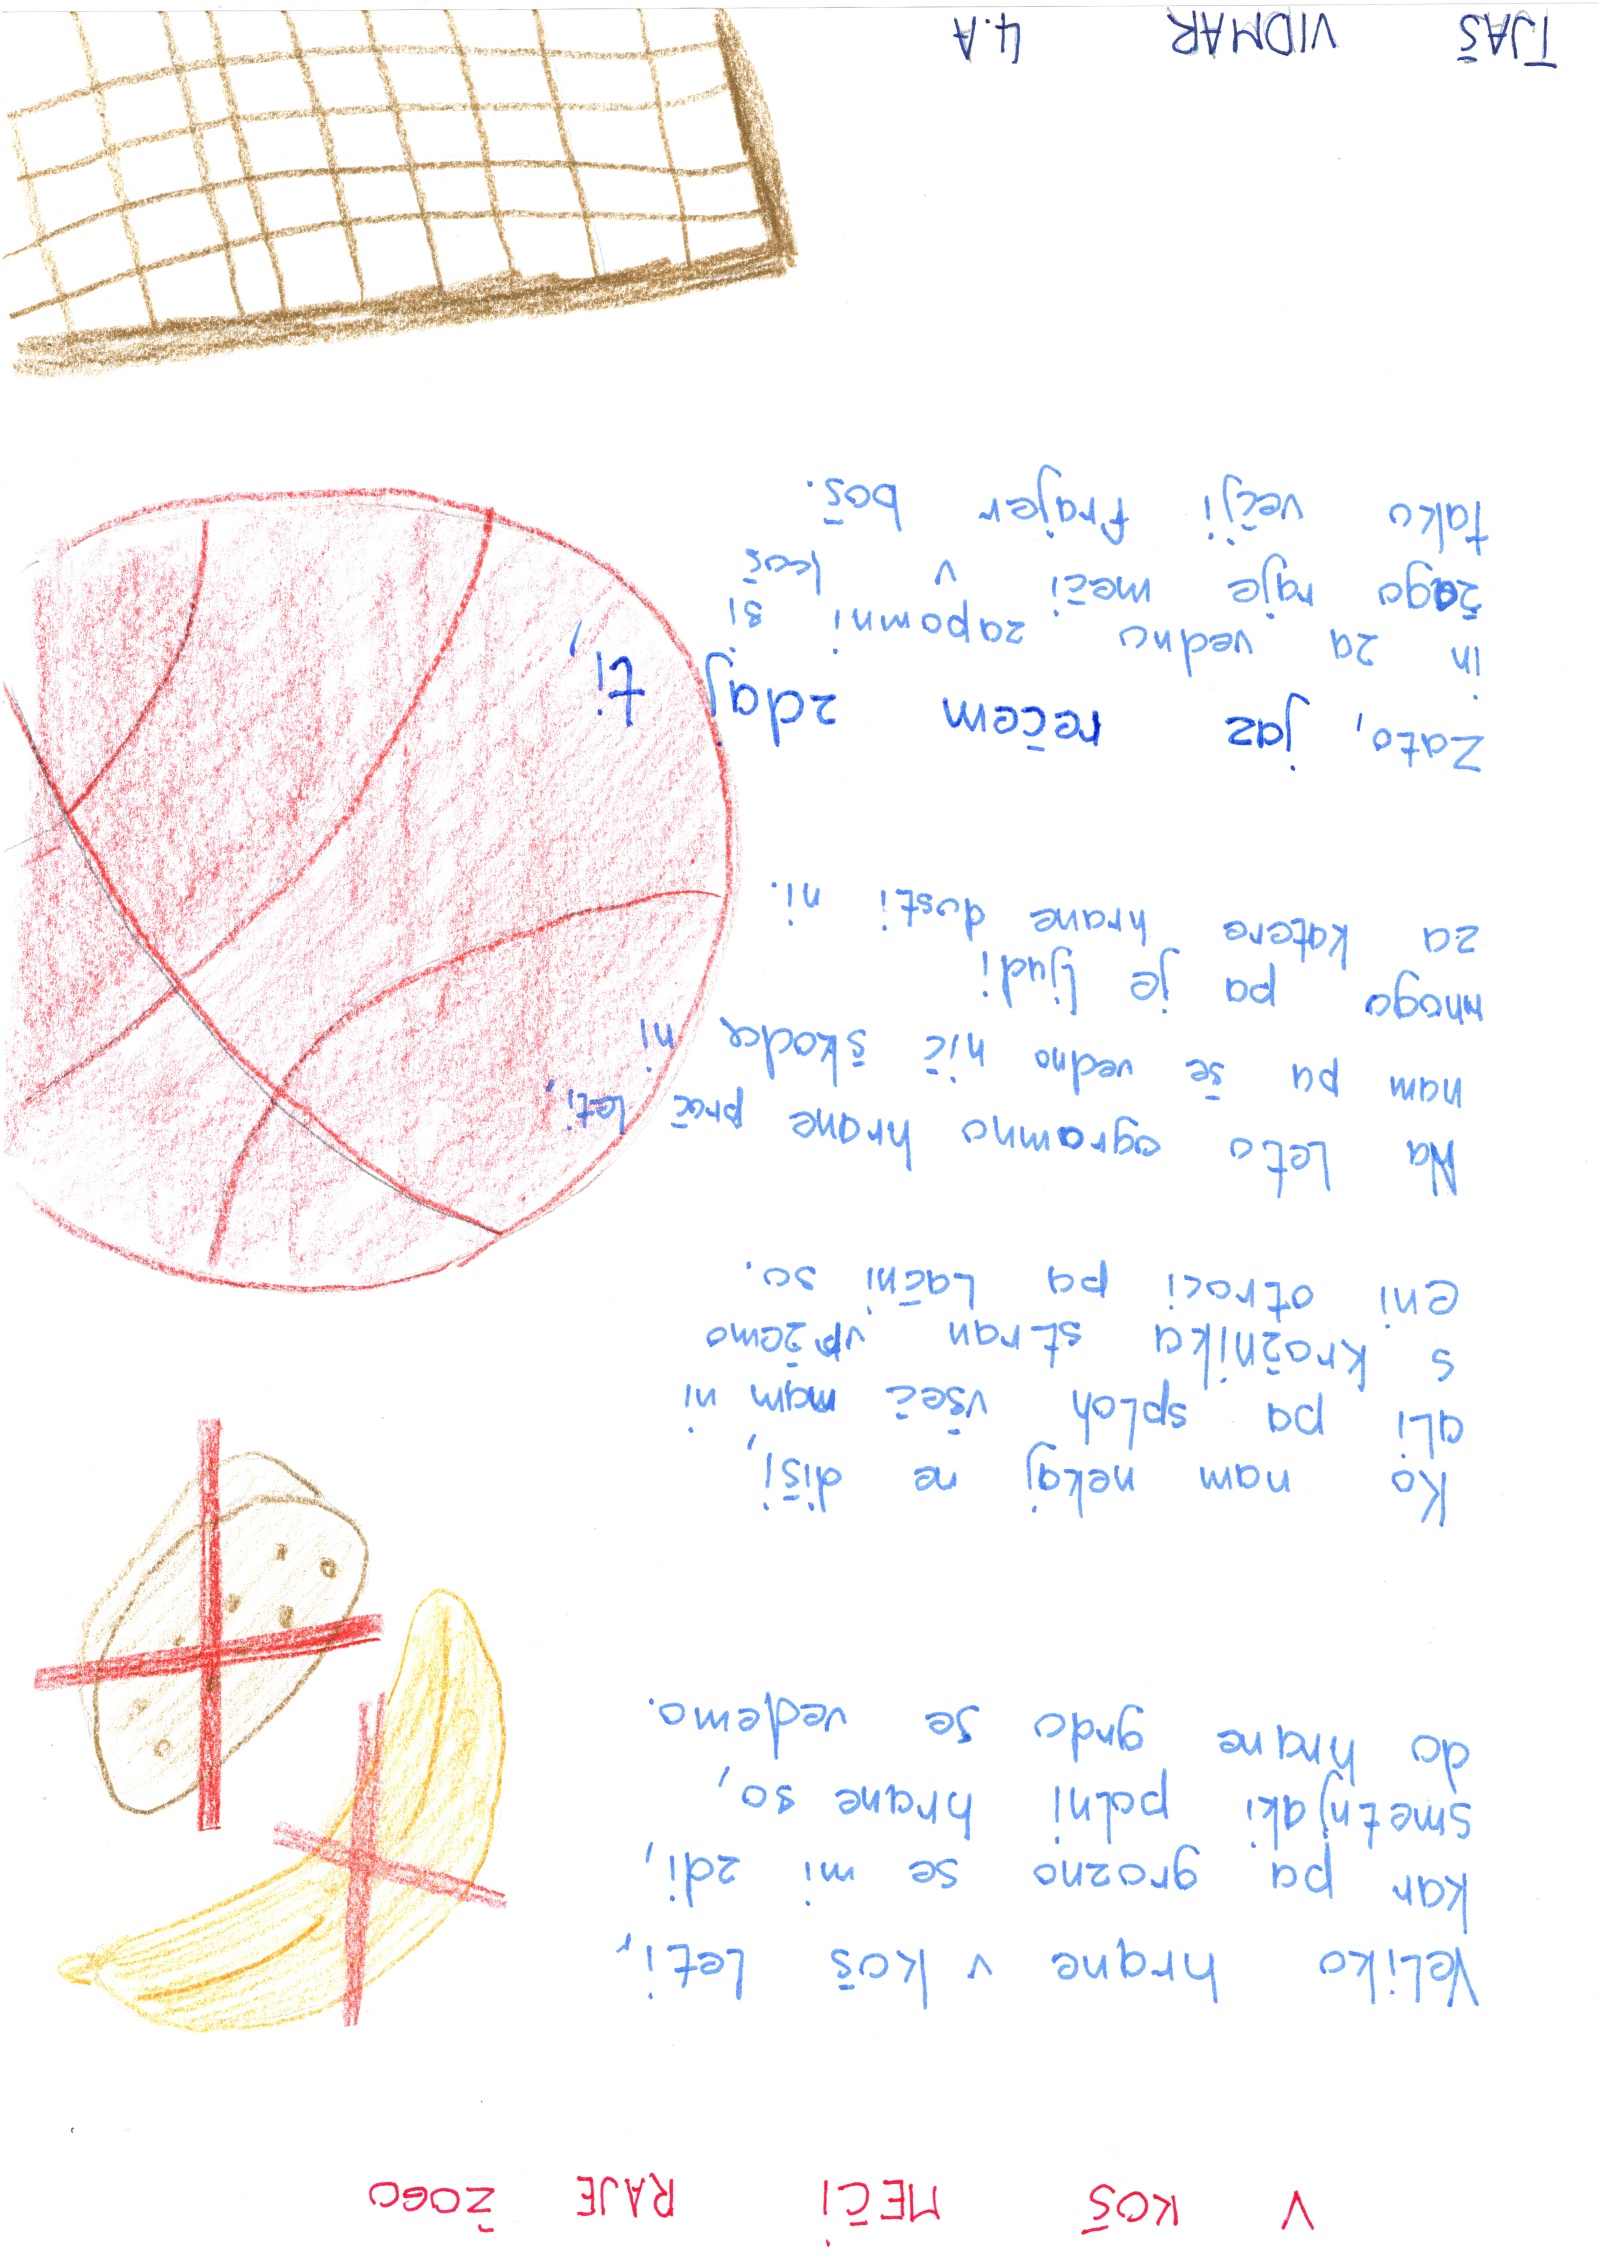 V KOŠ MEČI RAJE ŽOGO
Veliko hrane v koš leti,
kar pa grozno se mi zdi,
smetnjaki polni hrane so,
do hrane grdo se vedemo.
Ko nam nekaj ne diši,
ali pa sploh všeč nam ni
s krožnika stran vržemo
eni otroci pa lačni so.
Na leto ogromno hrane proč leti,
nam pa še vedno nič škoda ni
mnogo pa je ljudi
za katere hrane dosti ni.
Zato, jaz rečem zdaj ti,
in za vedno zapomni si
žogo raje meči v koš
tako večji frajer boš.
TJAŠ VIDMAR 4.A